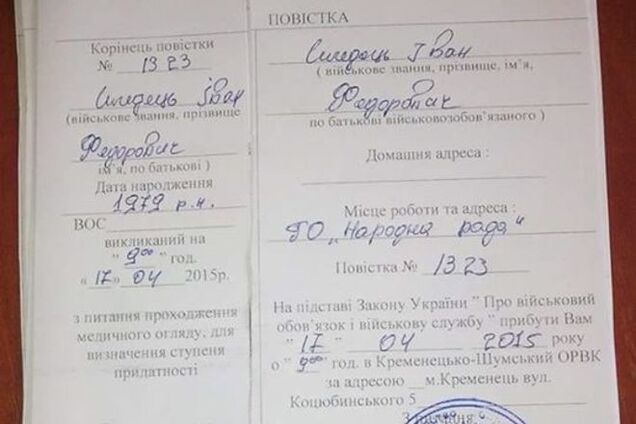 Корінець повістки
№ 1323
Іван
(військове звання, прізвище
Федорович
ім'я, по батькові)
Дата народження
1979 р.н.
ВОС
викликаний на
" 9⁰⁰ " год.
« 17 » 04 2015р.
з питання проходження
медичного огляду, для
визначення ступеня
придатності
ПОВІСТКА
Іван
( військове звання, прізвище, ім'я,
Федорович
по батькові військовозобов'язаного )
Домашня адреса :
Місце роботи та адреса :
ГО „Народна рада"
Повістка № 1323
На підставі Закону України " Про військовий
обов'язок і військову службу " прибути Вам
" 17 " 04 2015 року
о " 9⁰⁰ год. в Кременецько-Шумський ОРВК
за адресою м.Кременець вул.
Коцюбинського 5